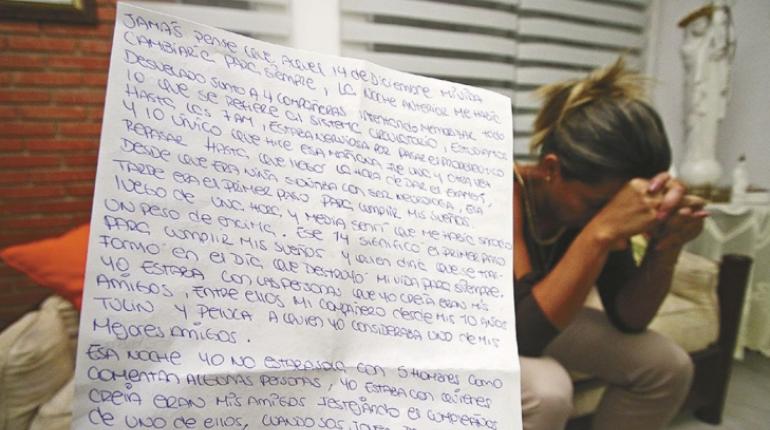 JAMÁS PENSE QUE AQUEL 14 DE DICIEMBRE MI VIDA
CAMBIARÍA PARA SIEMPRE, LA NOCHE ANTERIOR ME HABÍA
DESVELADO JUNTO A 4 COMPAÑERAS INTENTANDO MEMORIZAR TODO
LO QUE SE REFIERE AL SISTEMA CIRCULATORIO, ESTUDIAMOS
HASTA LAS 7 AM, ESTABA NERVIOSA POR PASAR EL PROPEDEUTICO
Y LO UNICO QUE HICE ESA MAÑANA FUE UNA Y OTRA VEZ
REPASAR HASTA QUE LLEGO LA HORA DE DAR EL EXAMEN,
DESDE QUE ERA NIÑA SOÑABA CON SER NEUROLOGA, ESA
TARDE ERA EL PRIMER PASO PARA CUMPLIR MIS SUEÑOS.
LUEGO DE UNA HORA Y MEDIA SENTI QUE ME HABÍA SACADO
UN PESO DE ENCIMA. ESE 14 SIGNIFICO EL PRIMER PASO
PARA CUMPLIR MIS SUEÑOS Y QUIEN DIRIA QUE SE TRANS-
FORMO EN EL DÍA QUE DESTRUYO MI VIDA PARA SIEMPRE.
YO ESTABA CON LAS PERSONAS QUE YO CREÍA ERAN MIS
AMIGOS, ENTRE ELLOS MI COMPAÑERO DESDE MIS 10 AÑOS
TULIN Y PELUCA A QUIEN YO CONSIDERABA UNO DE MIS
MEJORES AMIGOS.
ESA NOCHE YO NO ESTABA SOLA CON 5 HOMBRES COMO
COMENTAN ALGUNAS PERSONAS, YO ESTABA CON QUIENES
CREIA ERAN MIS AMIGOS FESTEJANDO EL CUMPLEAÑOS
DE UNO DE ELLOS, CUANDO